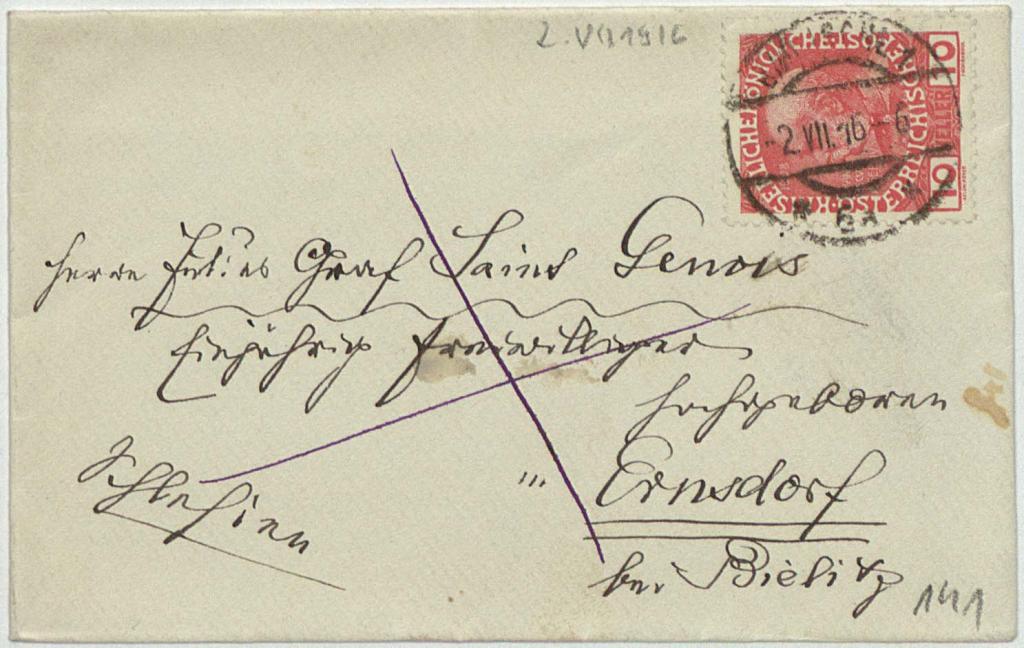 2. VII 1916
KAISERLICHE KÖNIGLICHE ÖSTERREICHISCHE
10 HELLER 10
-2.VII.16-6
* 6a *
Herrn Julius Graf Saint Genois
Einjährig Freiwilliger
Hochgeboren
in Ernsdorf
bei Bielitz
Schlesien
141